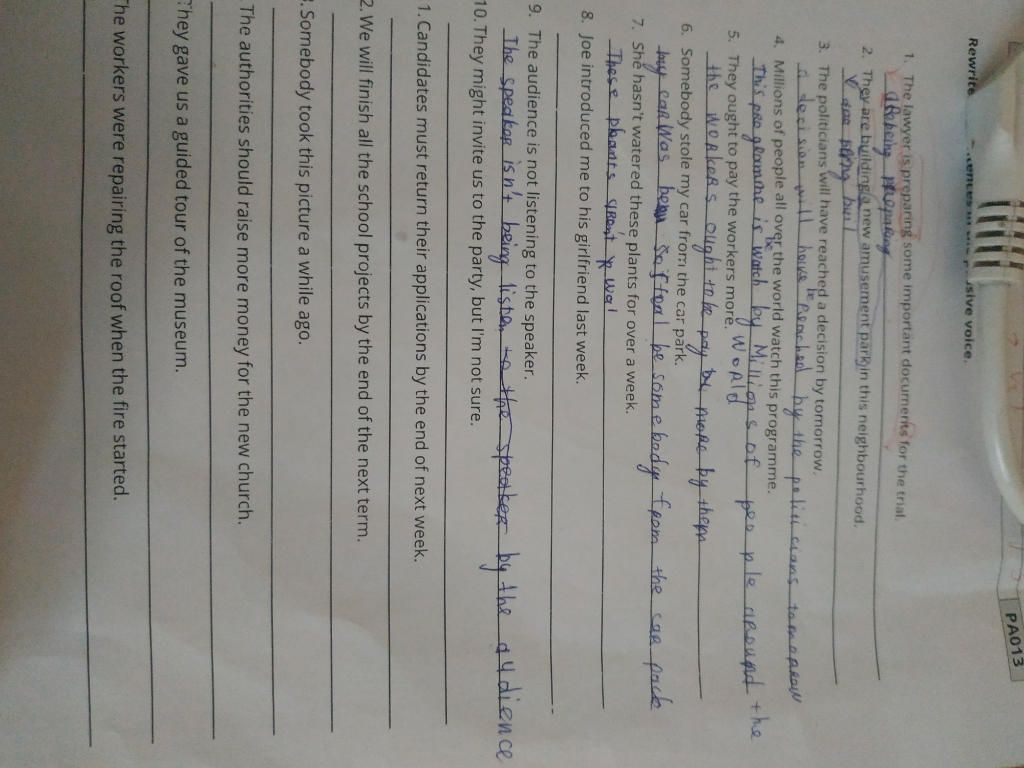 PA013
Rewrite sive voice.
1. The lawyer is preparing some important documents for the trial.
2. They are building a new amusement park in this neighbourhood.
3. The politicians will have reached a decision by tomorrow.
a decision will have be by the politicians tomorrow
4. Millions of people all over the world watch this programme.
This programme is watch by Millions of people around the
world
5. They ought to pay the workers more.
the workers ought to be pay more by them
6. Somebody stole my car from the car park.
my car was be somebody from the car park
7. She hasn't watered these plants for over a week.
These plants
8. Joe introduced me to his girlfriend last week.
9. The audience is not listening to the speaker.
The speaker isn't being listen to the speaker by the audience
10. They might invite us to the party, but I'm not sure.
1. Candidates must return their applications by the end of next week.
2. We will finish all the school projects by the end of the next term.
. Somebody took this picture a while ago.
The authorities should raise more money for the new church.
They gave us a guided tour of the museum.
The workers were repairing the roof when the fire started.